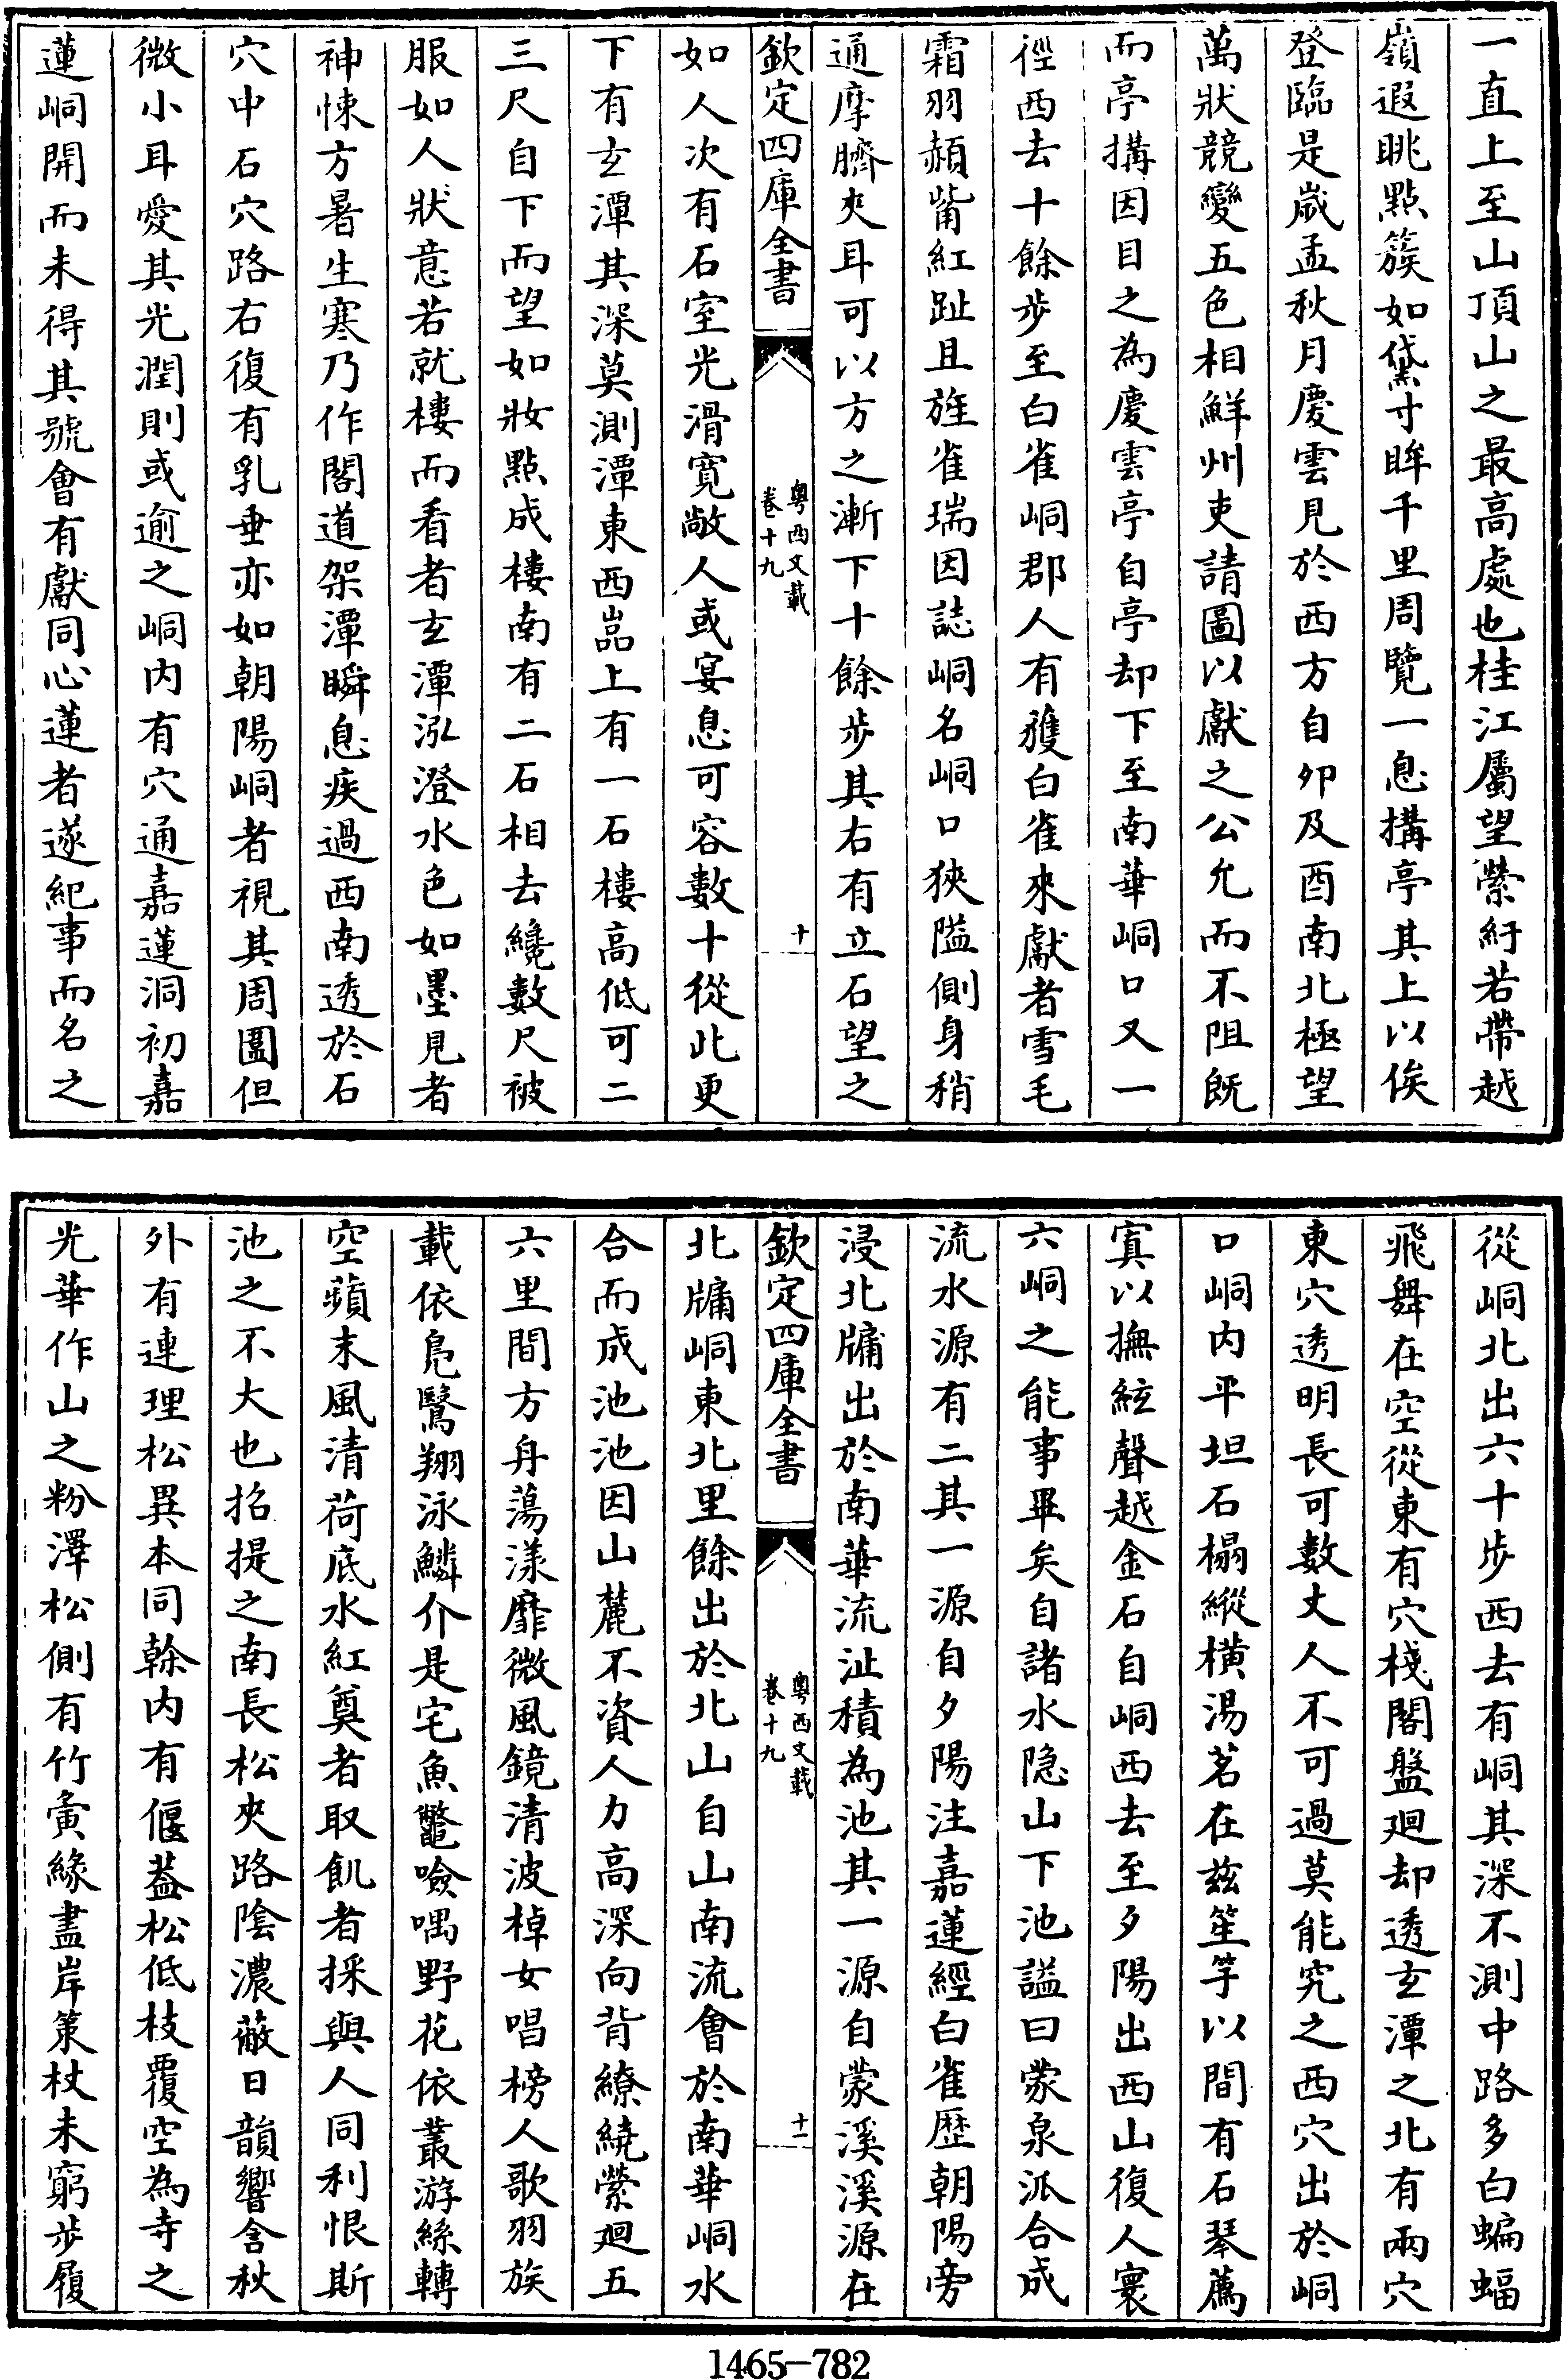 一直上至山頂山之最高處也桂江屬望縈紆若帶越
嶺遐眺點簇如黛寸眸千里周覽一息搆亭其上以俟
登臨是歲孟秋月慶雲見於西方自夘及酉南北極望
萬狀競變五色相鮮州吏請圖以獻之公允而不阻既
而亭搆因目之為慶雲亭自亭却下至南華峒口又一
徑西去十餘步至白雀峒郡人有獲白雀來獻者雪毛
霜羽頳觜紅趾且旌雀瑞因誌峒名峒口狹隘側身稍
通摩臍夾耳可以方之漸下十餘步其右有立石望之
欽定四庫全書
粤西文載
卷十九
十
如人次有石室光滑寛敞人或宴息可容數十從此更
下有玄潭其深莫測潭東西嵓上有一石樓高低可二
三尺自下而望如妝點成樓南有二石相去纔數尺被
服如人狀意若就樓而看者玄潭泓澄水色如墨見者
神悚方暑生寒乃作閣道架潭瞬息疾過西南透於石
穴中石穴路右復有乳垂亦如朝陽峒者視其周圍但
微小耳愛其光潤則或逾之峒内有穴通嘉蓮洞初嘉
蓮峒開而未得其號會有獻同心蓮者遂紀事而名之
從峒北出六十步西去有峒其深不測中路多白蝙蝠
飛舞在空從東有穴棧閣盤廻却透玄潭之北有兩穴
東穴透明長可數丈人不可過莫能究之西穴出於峒
口峒内平坦石榻縱横湯茗在兹笙竽以間有石琴薦
寘以撫絃聲越金石自峒西去至夕陽出西山復人寰
六峒之能事畢矣自諸水隐山下池謚曰蒙泉派合成
流水源有二其一源自夕陽注嘉蓮經白雀歴朝陽旁
浸北牗出於南華流沚積為池其一源自蒙溪溪源在
欽定四庫全書
粤西文載
卷十九
十一
北牗峒東北里餘出於北山自山南流會於南華峒水
合而成池池因山麓不資人力高深向背繚繞縈廻五
六里間方舟蕩漾靡微風鏡清波棹女唱榜人歌羽族
載依鳬鷖翔泳鱗介是宅魚鼈噞喁野花依叢游絲轉
空蘋末風清荷底水紅奠者取飢者採與人同利恨斯
池之不大也招提之南長松夾路陰濃蔽日韻響含秋
外有連理松異本同幹内有偃葢松低枝覆空為寺之
光華作山之粉澤松側有竹夤緣盡岸策杖未窮步履
1465-782